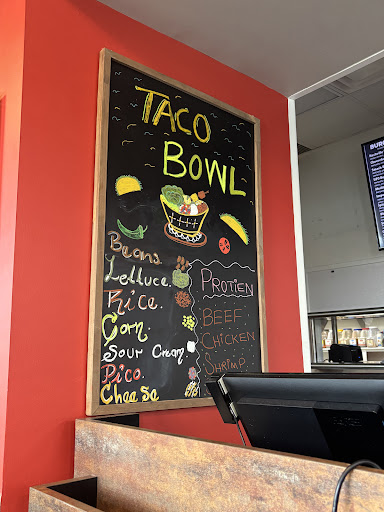 TACO
BOWL
Beans.
Lettuce.
Rice.
Corn.
Sour Cream.
Pico.
Cheese
PROTIEN
BEEF
CHICKEN
SHRIMP